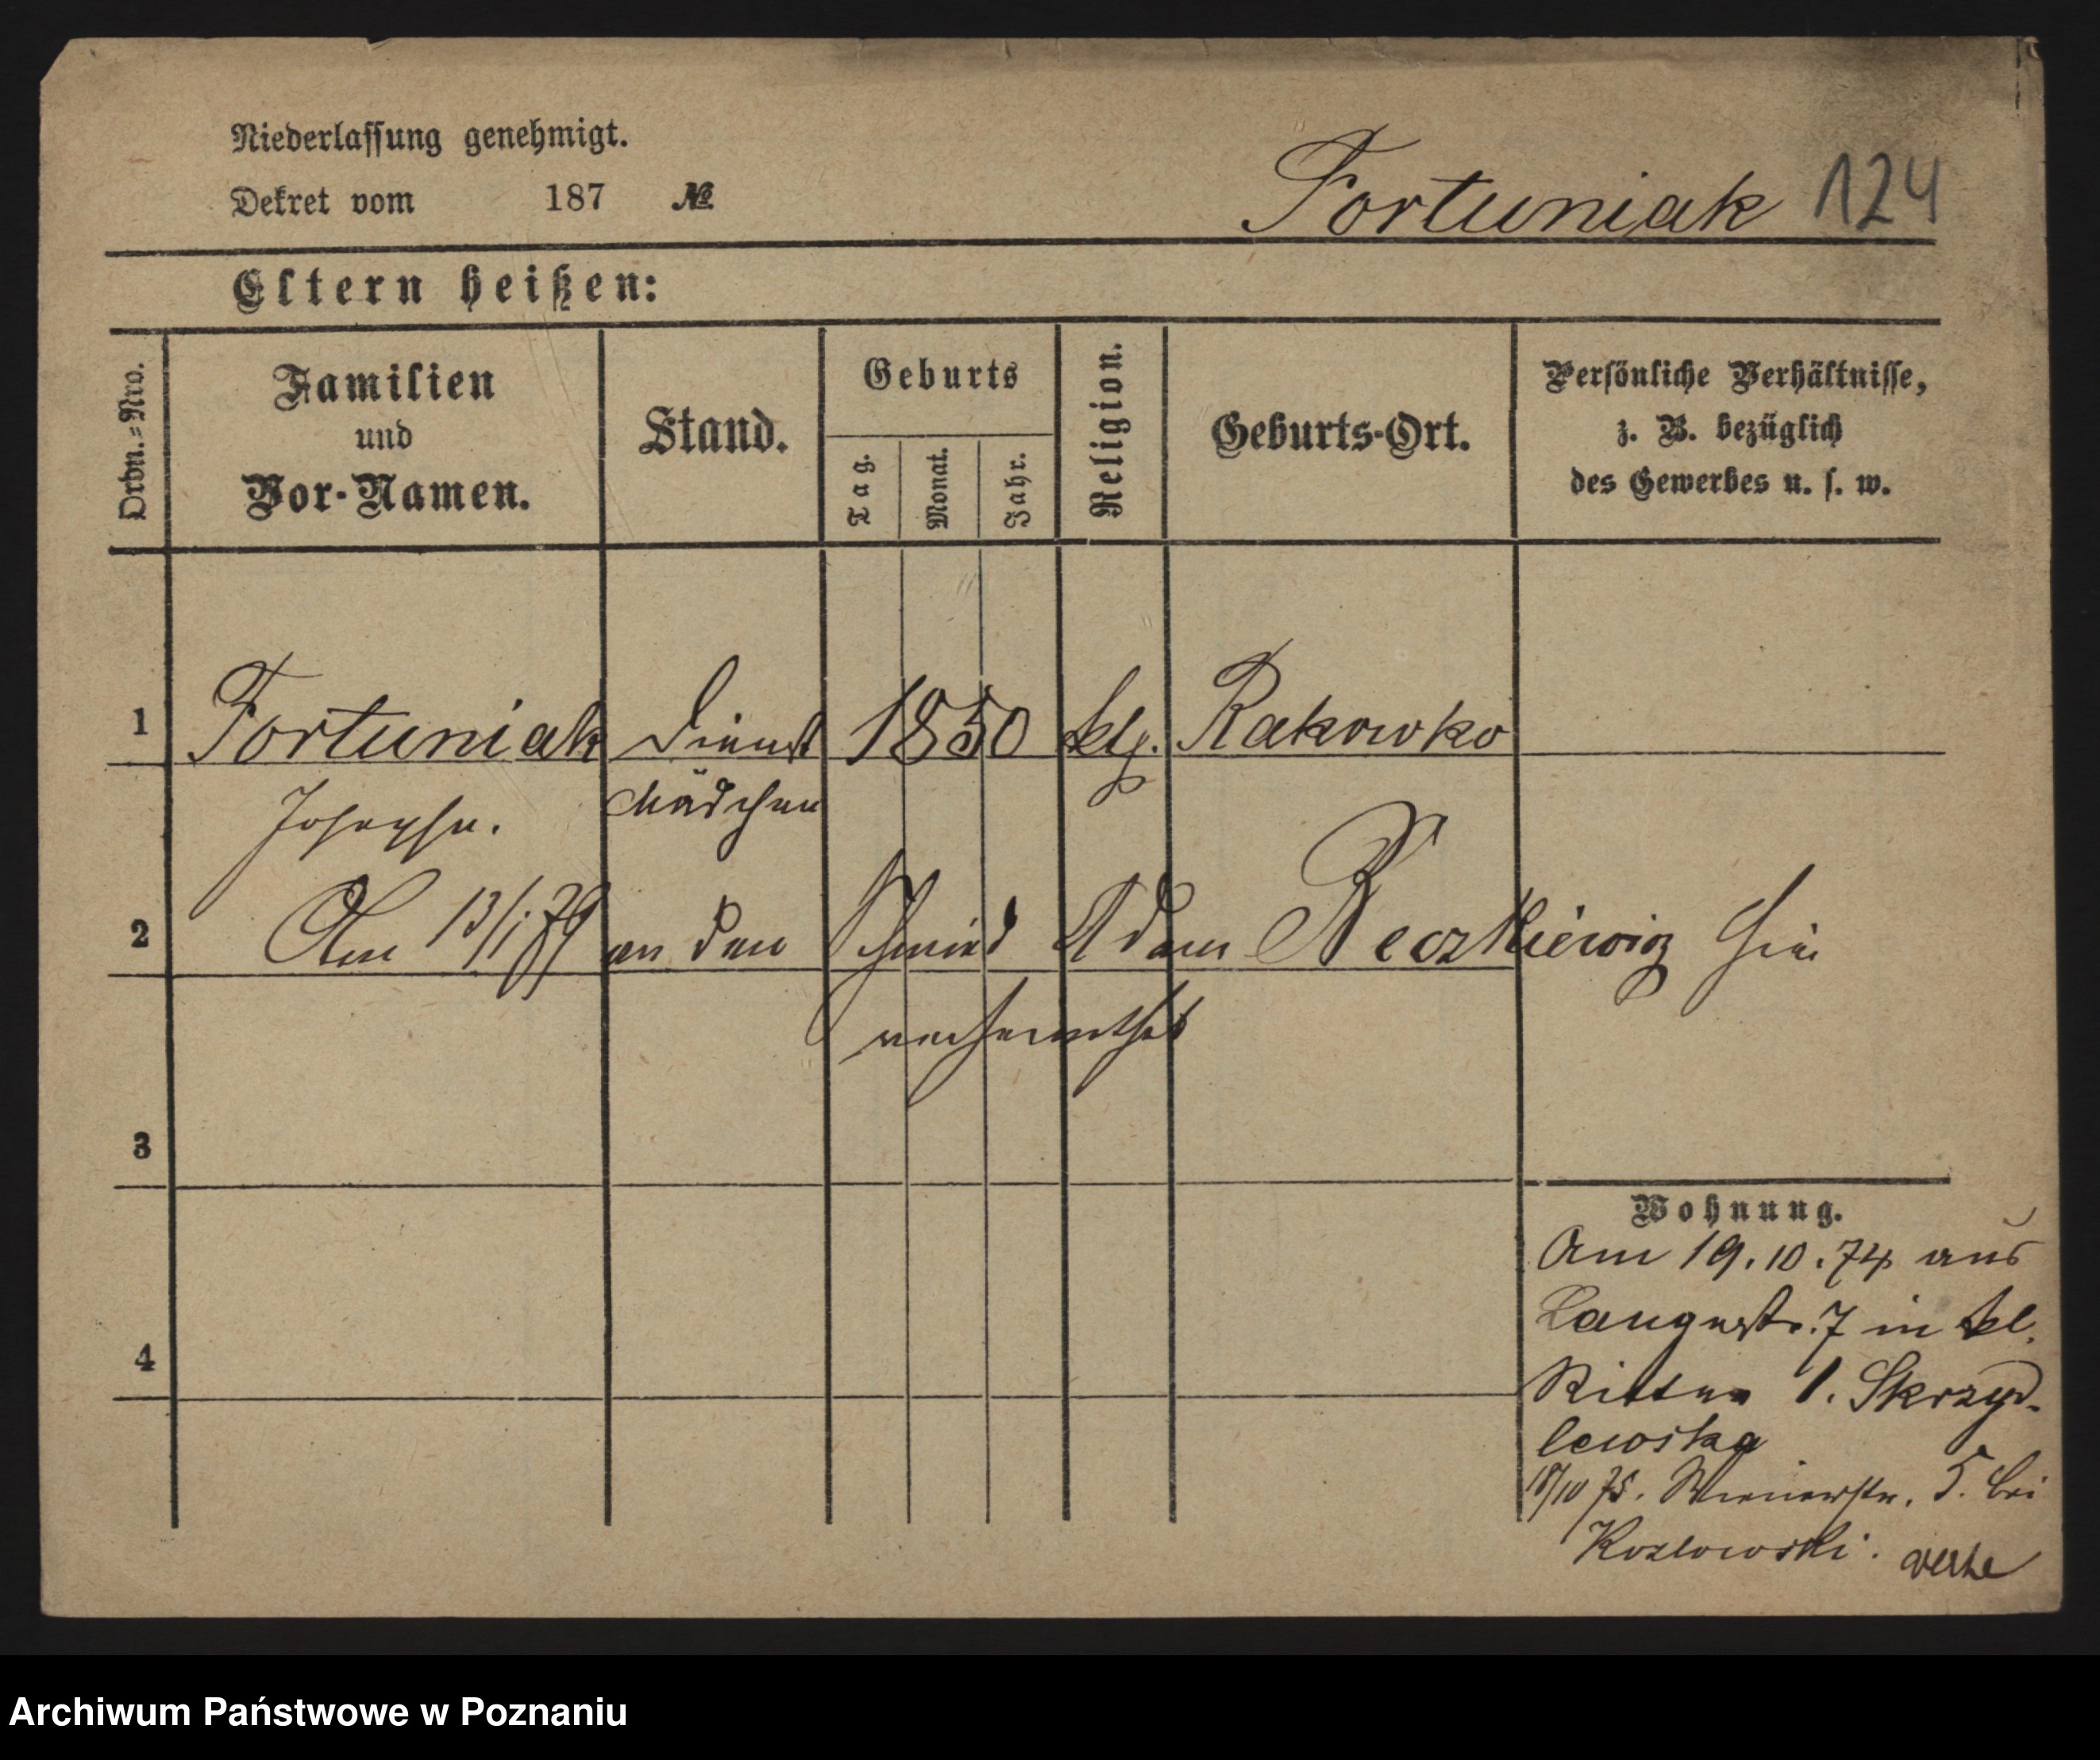 Niederlassung genehmigt.
Dekret vom 187 №
Fortuniak 124
Eltern heißen:
Ordn.=Nro.
Familien
und
Vor-Namen.
Stand.
Geburts
Tag.
Monat.
Jahr.
Religion.
Geburts-Ort.
Persönliche Verhältnisse,
z. B. bezüglich
des Gewerbes u. s. w.
1 Fortuniak Dienst 1850 ktl. Rakowko
Josepha. Mädchen
2 Am 13/1. 79 an den Schmied Adam Reczkiewicz hier
verheirathet
3
4
Wohnung.
Am 19.10.74 aus
Langestr. 7 in kl.
Ritter 1. Skrzyd-
lewska
18/10 75. Wienerstr. 5. bei
Kozlowski. verte
Archiwum Państwowe w Poznaniu